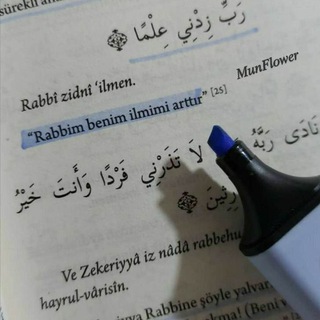 sürekli
رَبِّ زِدْنِي عِلْمًا
Rabbî zidnî ‘ilmen.
MunFlower
“Rabbim benim ilmimi arttır” [25]
نَادَى رَبَّهُ لَا تَذَرْنِي فَرْدًا وَأَنتَ خَيْرُ
Ve Zekeriyyâ iz nâdâ rabbehu
hayrul-vârisîn.
Rabbine şöyle yalvar